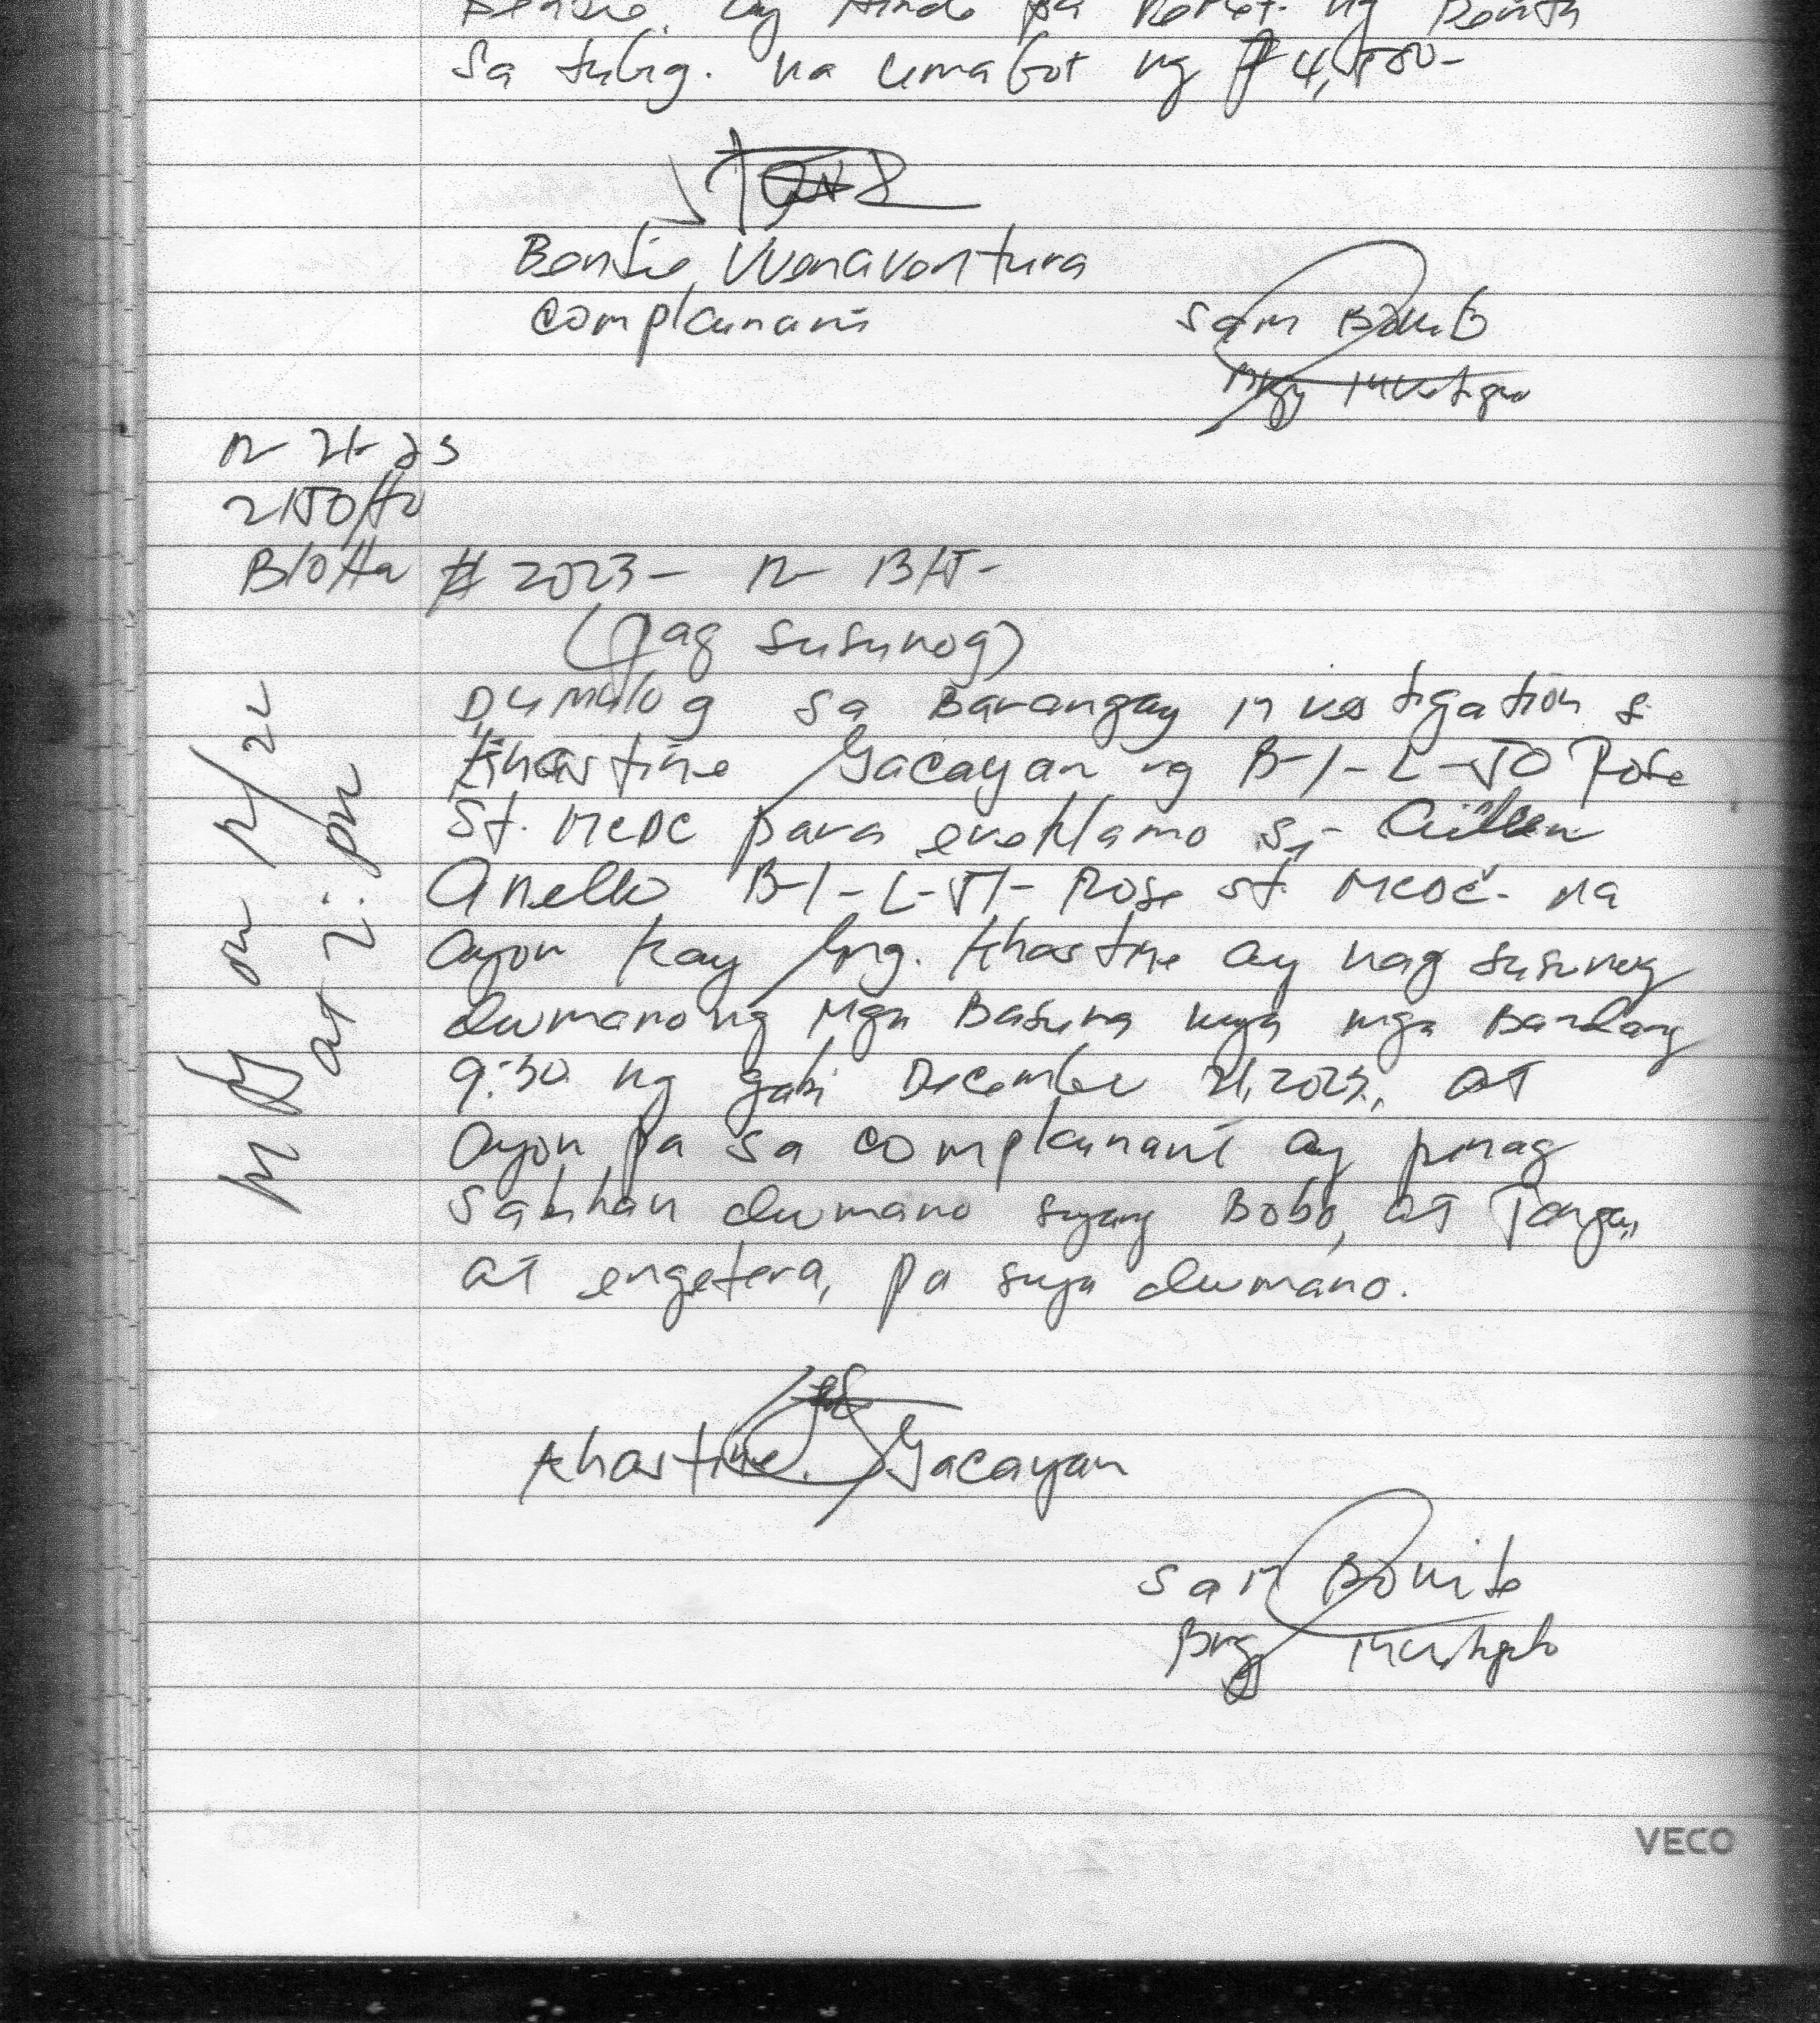 sa tubig. na umabot ng ₱4,580-
Bentie Vvenaventura
complainant
Sam Bonito
Brgy Investigator
12-21-23
2150H
Blotter # 2023- 12- 1315-
(Pag susunog)
Dumulog sa Barangay investigation si
Khastine Gacayan ng B-1-L-50 Rose
St. MCDC para ereklamo si
Anello B-1-L-51- Rose st. MCDC- na
ayon kay Gng. Khastine ay nag susunog
dumano ng mga Basura nuya mga Bandang
9:30 ng gabi December 21, 2023, at
ayon pa sa complainant ay pinag
sabihan dumano syang Bobo, at Tanga,,
at engetera, pa suya dumano.
on 12/22
at 2: pm
Khastine Gacayan
Sam Bonito
Brgy Investigator
VECO